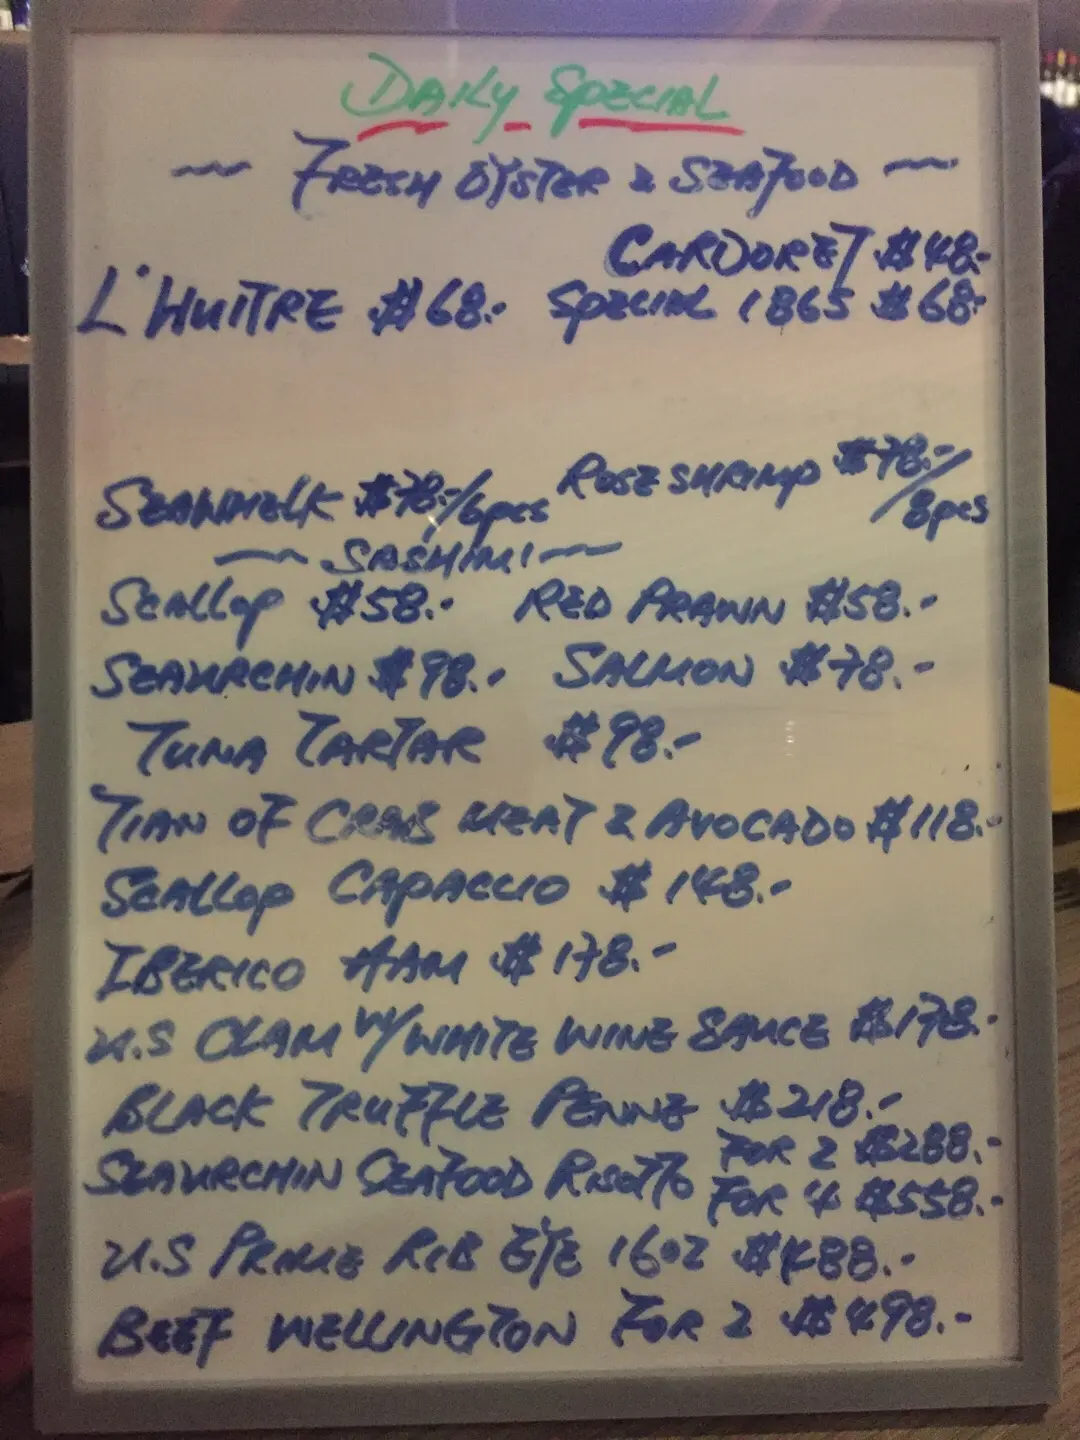 DAILY SPECIAL
~ FRESH OYSTER & SEAFOOD ~
CARDORET $48.-
L'HUITRE $68.- SPECIAL 1865 $68.-
SEAWHELK $78.-/6pcs ROSE SHRIMP $78.-/8pcs
~ SASHIMI ~
SCALLOP $58.- RED PRAWN $58.-
SEAURCHIN $98.- SALMON $78.-
TUNA TARTAR $98.-
TIAN OF CRAB MEAT & AVOCADO $118.-
SCALLOP CAPACCIO $148.-
IBERICO HAM $178.-
U.S CLAM W/WHITE WINE SAUCE $178.-
BLACK TRUFFLE PENNE $218.-
SEAURCHIN SEAFOOD RISOTTO FOR 2 $288.-
FOR 4 $558.-
U.S PRIME RIB EYE 16oz $488.-
BEEF WELLINGTON FOR 2 $498.-